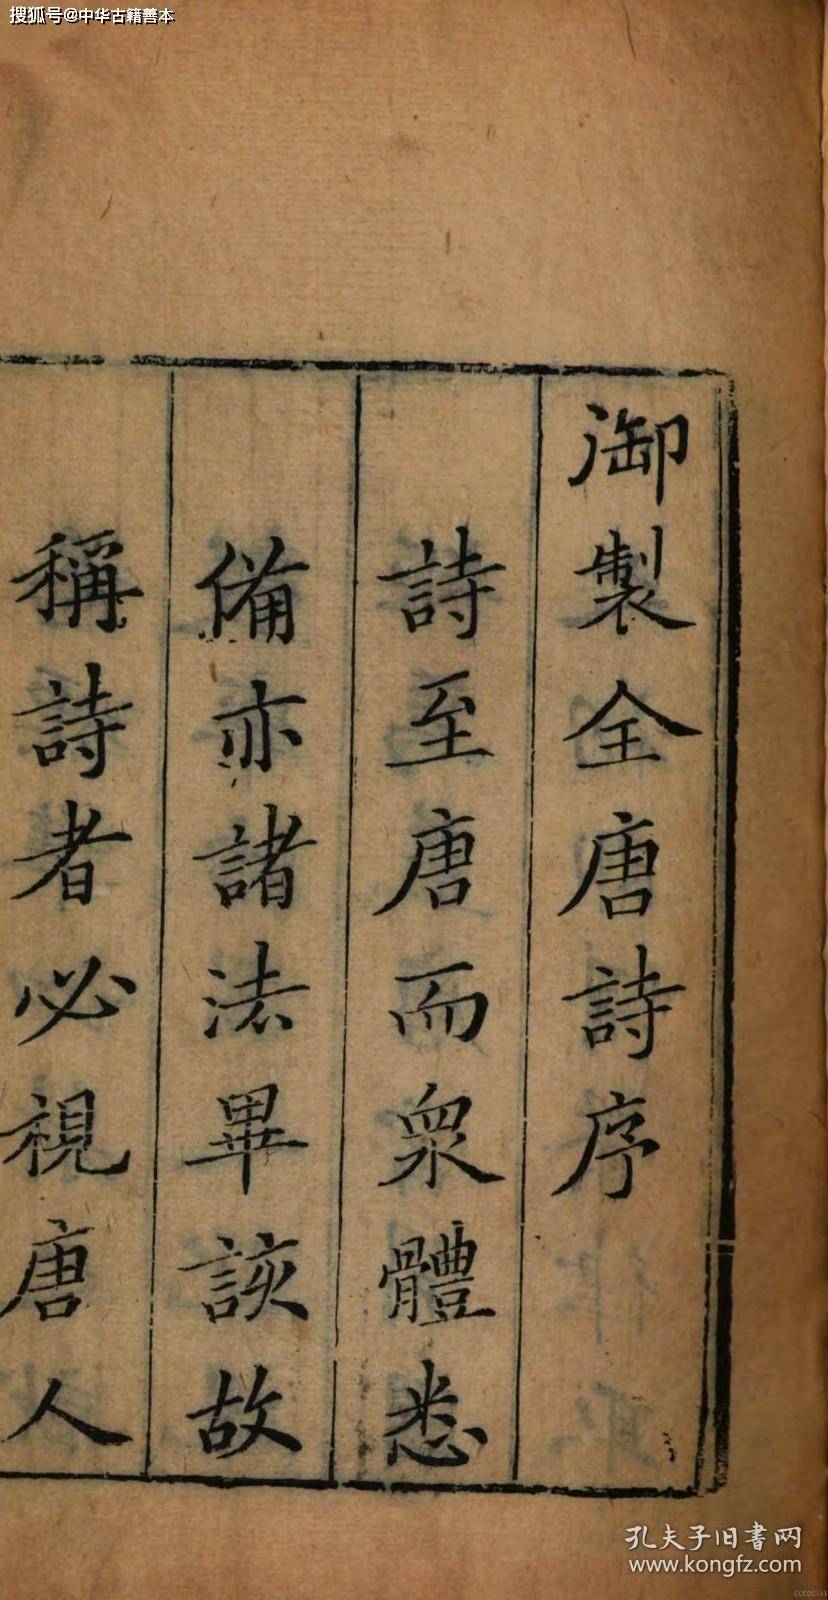 搜狐号@中华古籍善本
御製全唐詩序
詩至唐而衆體悉
備亦諸法畢該故
稱詩者必視唐人
孔夫子旧书网
www.kongfz.com